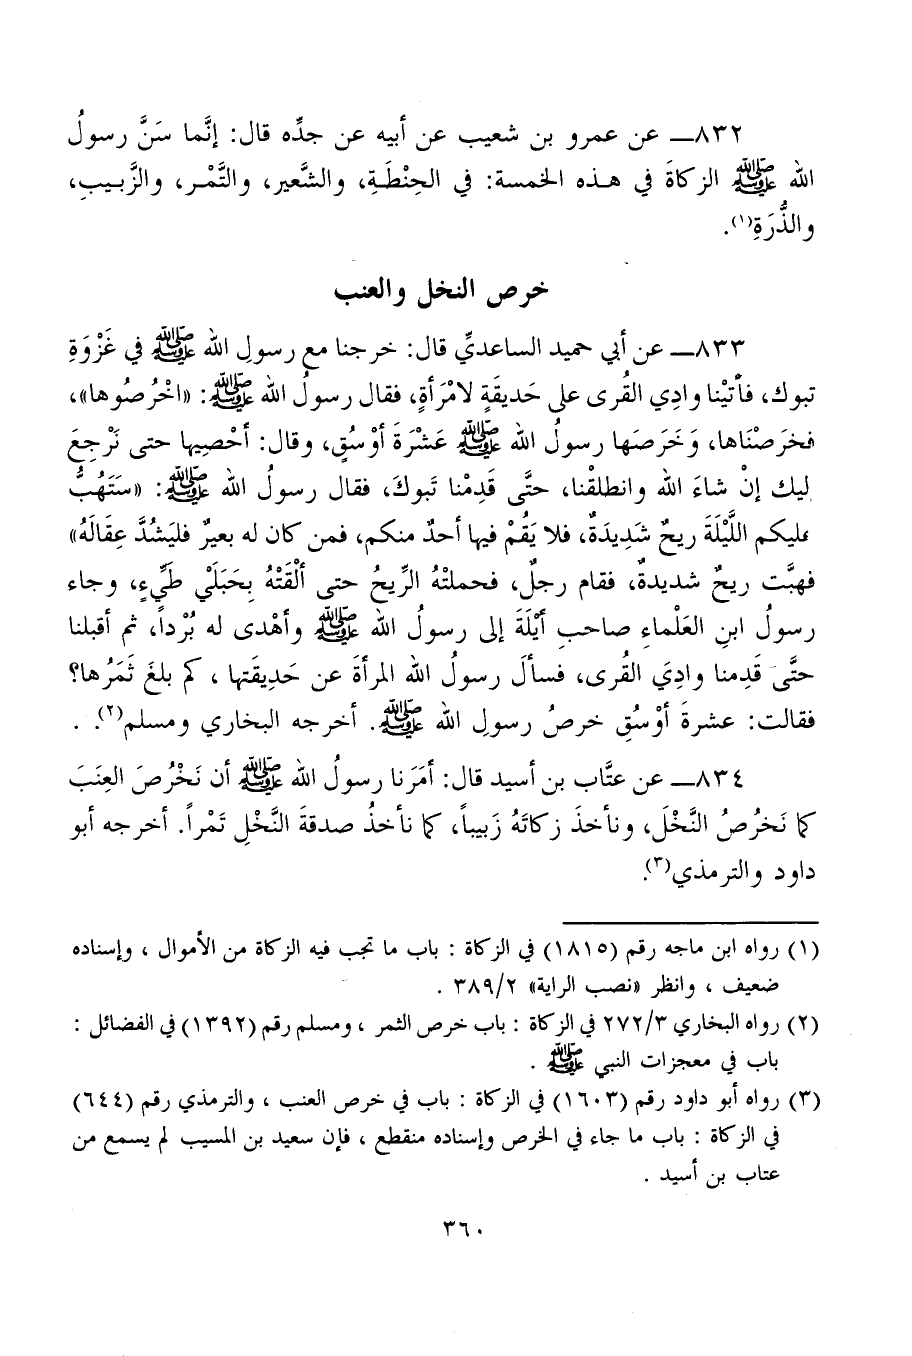 ٨٣٢ــ عن عمرو بن شعيب عن أبيه عن جدِّه قال: إنَّما سَنَّ رسولُ
الله ﷺ الزكاةَ في هـذه الخمسة: في الحِنْطَةِ، والشَّعير، والتَّمْر، والزَّبيبِ،
والذُّرَةِ(١).
خرص النخل والعنب
٨٣٣ــ عن أبي حميد الساعديِّ قال: خرجنا مع رسولِ الله ﷺ في غَزْوَةِ
تبوك، فأتيْنا وادِي القُرى على حَديقَةٍ لامْرَأةٍ، فقال رسولُ الله ﷺ: «اخْرُصُوها»،
فخرَصْنَاها، وَخَرَصَها رسولُ الله ﷺ عَشْرَةَ أوْسُقٍ، وقال: أحْصِيها حتى نَرْجِعَ
ليك إنْ شاءَ الله وانطلقْنا، حتَّى قَدِمْنا تَبوكَ، فقال رسولُ الله ﷺ: «سَتَهُبُّ
عليكم اللَّيْلَةَ ريحٌ شَدِيدَةٌ، فلا يَقُمْ فيها أحدٌ منكم، فمن كان له بعيرٌ فليَشُدَّ عِقَالَهُ»
فهبَّت ريحٌ شديدةٌ، فقام رجلٌ، فحملتْهُ الرِّيحُ حتى ألْقَتْهُ بِجَبَلَيْ طَيِّءٍ، وجاء
رسولُ ابنِ العَلْماءِ صاحبِ أيْلَةَ إلى رسولِ الله ﷺ وأهْدى له بُرْداً، ثم أقبلنا
حتَّى قَدِمنا وادِيَ القُرى، فسألَ رسولُ الله المرأةَ عن حَديقَتها ، كم بلغَ ثَمَرُها؟
فقالت: عشرةَ أوْسُقٍ خرصُ رسولِ الله ﷺ. أخرجه البخاري ومسلم(٢). .
٨٣٤ــ عن عتَّاب بن أسيد قال: أمَرَنا رسولُ الله ﷺ أن نَخْرُصَ العِنَبَ
كما نَخرُصُ النَّخْلَ، ونأخذَ زكاتَهُ زَبيباً، كما نأخذُ صدقةَ النَّخْلِ تَمْراً. أخرجه أبو
داود والترمذي(٣).
(١) رواه ابن ماجه رقم (١٨١٥) في الزكاة : باب ما تجب فيه الزكاة من الأموال ، وإسناده
ضعيف ، وانظر «نصب الراية» ٣٨٩/٢ .
(٢) رواه البخاري ٢٧٢/٣ في الزكاة : باب خرص الثمر ، ومسلم رقم (١٣٩٢) في الفضائل :
باب في معجزات النبي ﷺ .
(٣) رواه أبو داود رقم (١٦٠٣) في الزكاة : باب في خرص العنب ، والترمذي رقم (٦٤٤)
في الزكاة : باب ما جاء في الخرص وإسناده منقطع ، فإن سعيد بن المسيب لم يسمع من
عتاب بن أسيد .
٣٦٠